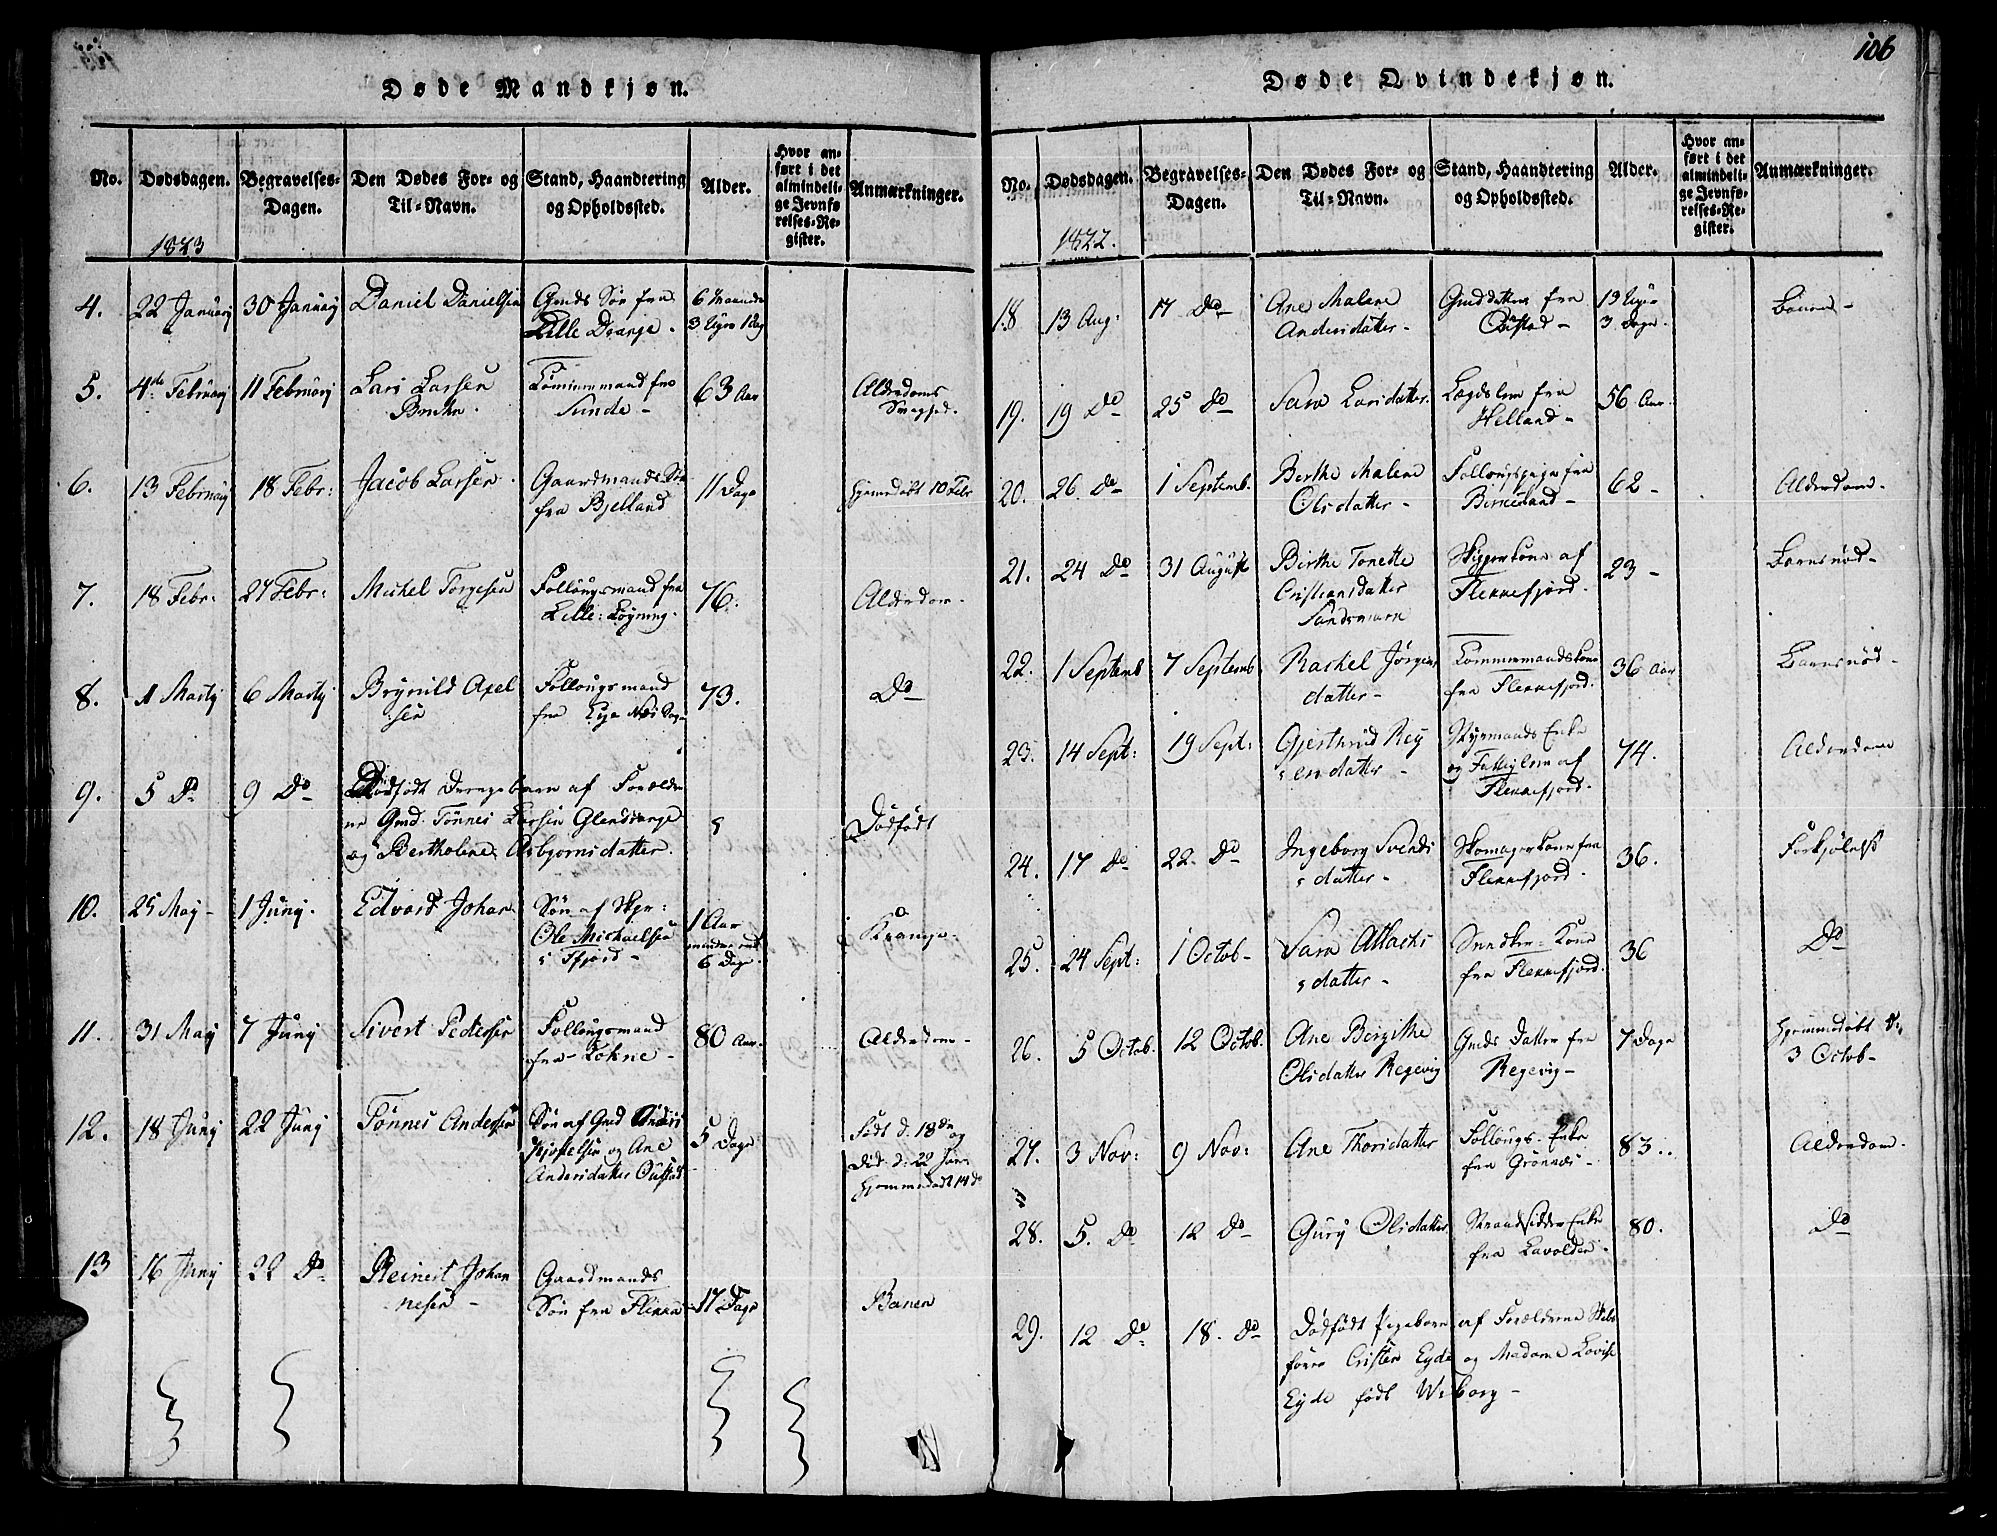 Døde Mandkjøn.
No.
Dødsdagen.
Begravelses-
Dagen.
Den Dødes For- og
Til-Navn.
Stand, Haandtering
og Opholdssted.
Alder.
Hvor an-
ført i det
almindeli-
ge Jevnfø-
relses-Re-
gister.
Anmærkninger.
1823
4.
22 Januarÿ
30 Januarÿ
Daniel Danielsen
Gmds Søn fra
Lille Drange.
6 Maaneder
3 Uger 1 Dag
5.
4de Februarÿ
11 Februarÿ
Lars Larsen
Tømmermand fra
Sunde -
63 Aar
Alderdoms
6.
13 Februarÿ
18 Febr:
Jacob Larsen
Gaardmands Søn
fra Bjelland
11 Dage
Hjemmedøbt 10 Febr
7.
18 Febr:
27 Febr:
Michel Torgesen
Follougsmand fra
Lille: Løgning.
76.
Alderdom.
8.
1 Martÿ
6 Martÿ
Brynild Axel
sen
Follougsmand
fra
73.
Do
9.
5 Do
9 Do
Dødfødt Drengebarn af Forældre
ne Gmd. Tønnes Larsen Glendrange
og Bertholine Asbjørnsdatter.
Dødfødt
10.
25 Maÿ -
1 Junÿ.
Edvard Johan
Søn af Skpr:
Ole Michaelsen
i Ffjord -
1 Aar
6 Dage
Krampe.
11.
31 Maÿ
7 Junÿ
Sivert Pedersen
Follougsmand
fra - Lohne -
80 Aar.
Alderdom -
12.
18 Junÿ
22 Junÿ
Tønnes Andersen
Søn af Gmd Anders
og Ane
Andersdatter Oustad
5 Dage
Født d. 18de og
Død. d. 22 Jun.
Hjemmedøbt 14 do
13
16 Junÿ
22 Do
Reinert Johan
nesen -
Gaardmands
Søn fra Flikka
17 Dage
Barnen
106
Døde Qvindekjøn.
No.
Dødsdagen.
Begravelses-
Dagen.
Den Dødes For- og
Til-Navn.
Stand, Haandtering
og Opholdssted.
Alder.
Hvor an-
ført i det
almindeli-
ge Jevnfø-
relses-Re-
gister.
Anmærkninger.
1822.
18
13 Aug:
17 Do
Ane Malene
Andersdatter -
Gmd datter fra
Oustad -
19 Uger
3 Dage.
19.
19 Do
25 Do
Sara Larsdatter.
Lægdslem fra
Helland -
56 Aar.
20.
26. Do
1 Septemb.
Berthe Malene
Olsdatter -
Follougspige fra
Birkeland -
62 -
Alderdom.
21.
24 Do
31 August
Birthe Tonette
Cristiansdatter
Sandsmarn
Skipperkone af
Flekkefjord.
23 -
Barnsnød -
22.
1 Septemb
7 Septemb.
Rachel Jørgens
datter -
Tømmermandskone
fra Flekkefjord.
36 Aar
Barnsnød -
23.
14 Sept:
19 Sept:
Gjerthrud Reÿ
ersdatter -
Styrmands Enke
og Fattiglem af
Flekkefjord.
74.
Alderdom
24.
17 Do
22. Do
Ingeborg Svends
datter -
Skomagerkone fra
Flekkefjord.
36.
Forkjølelse
25.
24 Sept:
1 Octob -
Sara Atlachs
datter -
Snedker - Kone
fra Flekkefjord.
36
Do
26.
5 Octob.
12 Octob.
Ane Bergithe
Olsdatter Regevig
Gmds Datter fra
Regevig -
7 Dage
Hjemmedøbt d:
3 Octob -
27.
3 Nov:
9 Nov:
Ane Thorsdatter
Follougs - Enke
fra Grønnæs -
83.
Alderdom.
28.
5. Do
12 Do
Gurÿ Olsdatter
Strandsidder Enke
fra Lavolden.
80.
Do
29.
12 Do.
18. Do
Dødfødt Pigebarn af Forældrene Skibs
fører Cristen Eÿde og Madame Lovise
Eÿde født Wiborg -